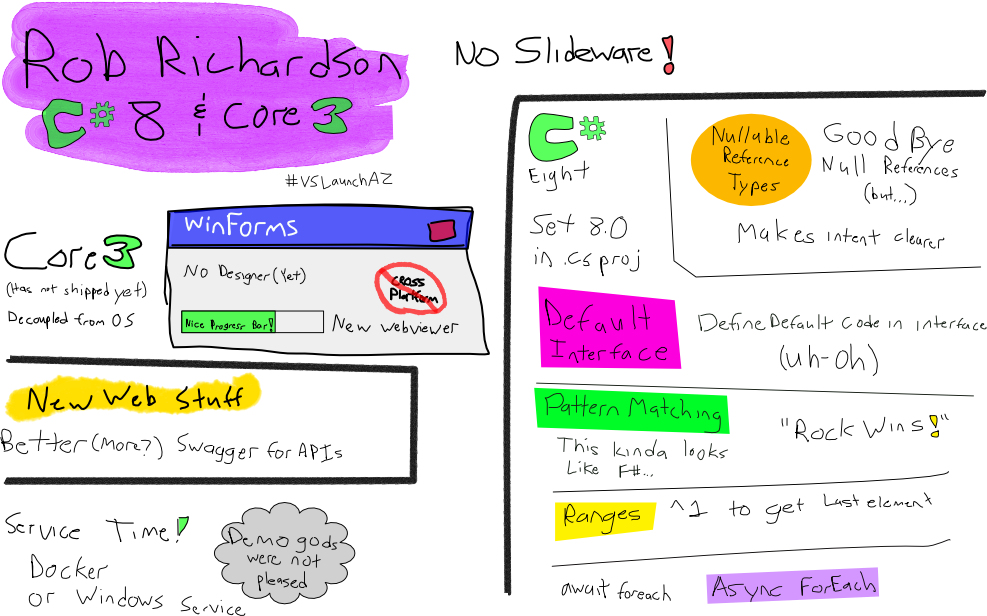 Rob Richardson
C# 8 & Core 3
#VSLaunchAZ
No Slideware!
Core 3
(Has not shipped yet)
Decoupled from OS
WinForms
No Designer (Yet)
Cross
Platform
Nice Progress Bar!
New webviewer
New Web Stuff
Better (More?) Swagger for APIs
Service Time!
Docker
or Windows Service
Demo gods
were not
pleased
C#
Eight
Set 8.0
in .csproj
Nullable
Reference
Types
Good Bye
Null References
(but...)
Makes intent clearer
Default
Interface
Define Default Code in interface
(uh-oh)
Pattern Matching
This kinda looks
Like F#...
"Rock Wins!"
Ranges
^1 to get Last element
await foreach
Async ForEach